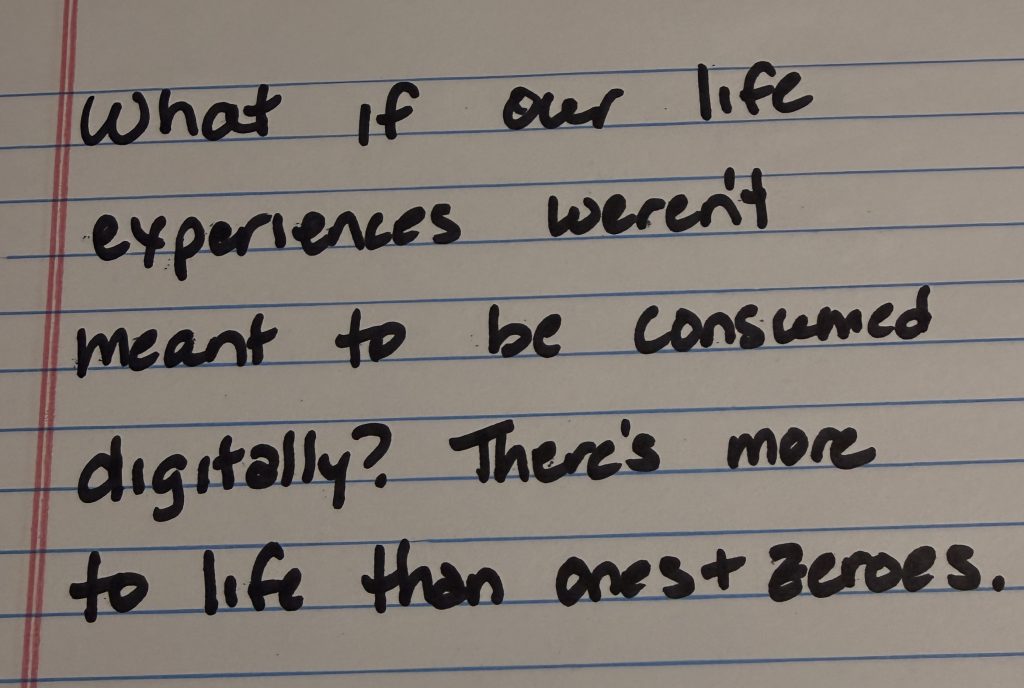 What if our life
experiences weren't
meant to be consumed
digitally? There's more
to life than ones + zeroes.